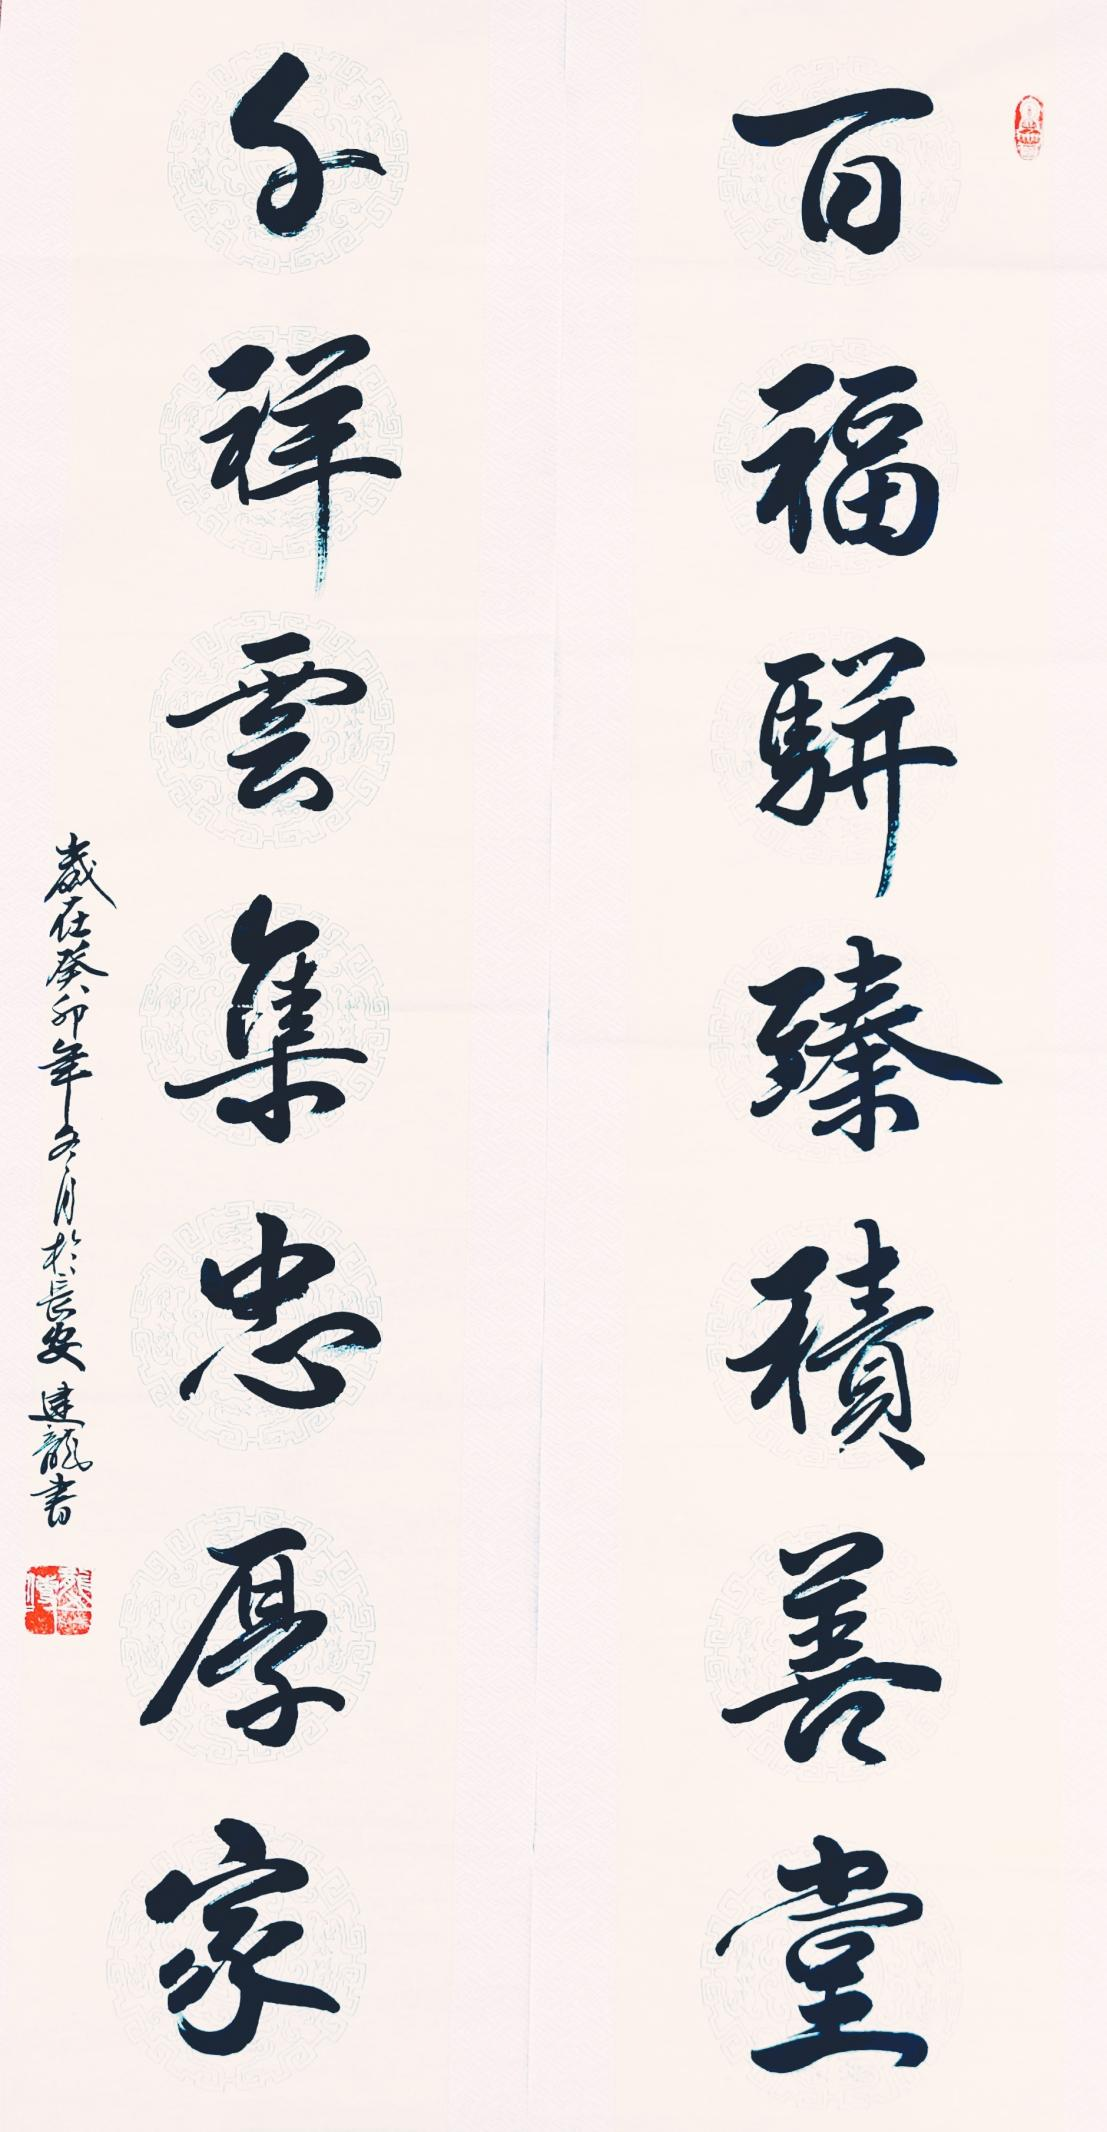 百福駢臻積善堂
千祥雲集忠厚家
歲在癸卯年冬月於長安建龍書